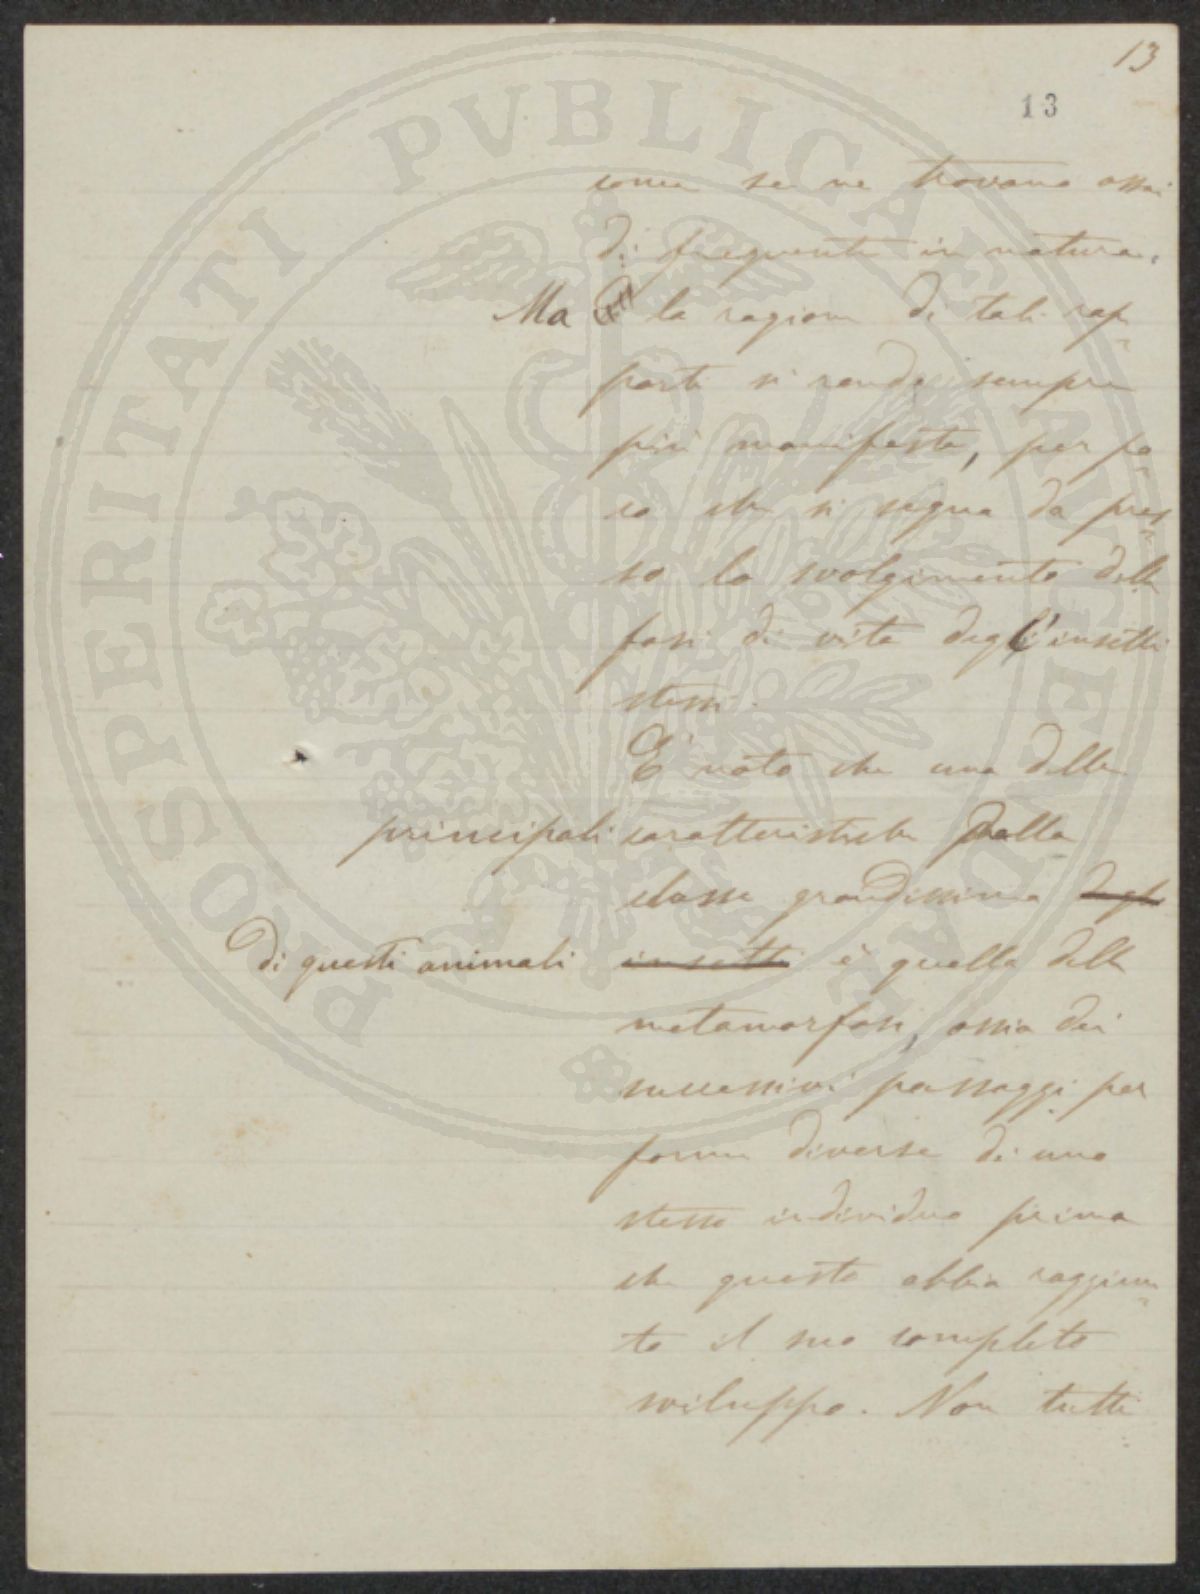 13
13
come se ne trovano assai
di frequente in natura.
Ma la ragione di tali rap-
porti si rende sempre
più manifesta, per po-
co che si segua da pres-
so lo svolgimento delle
fasi di vita degl'insetti
stessi.
E' noto che una delle
principali caratteristiche della
classe grandissima degli
di questi animali insetti è quella delle
metamorfosi, ossia dei
successivi passaggi per
forme diverse di uno
stesso individuo prima
che questo abbia raggiun-
to il suo completo
sviluppo. Non tutti
PROSPERITATI PVBLICAE AVGENDAE